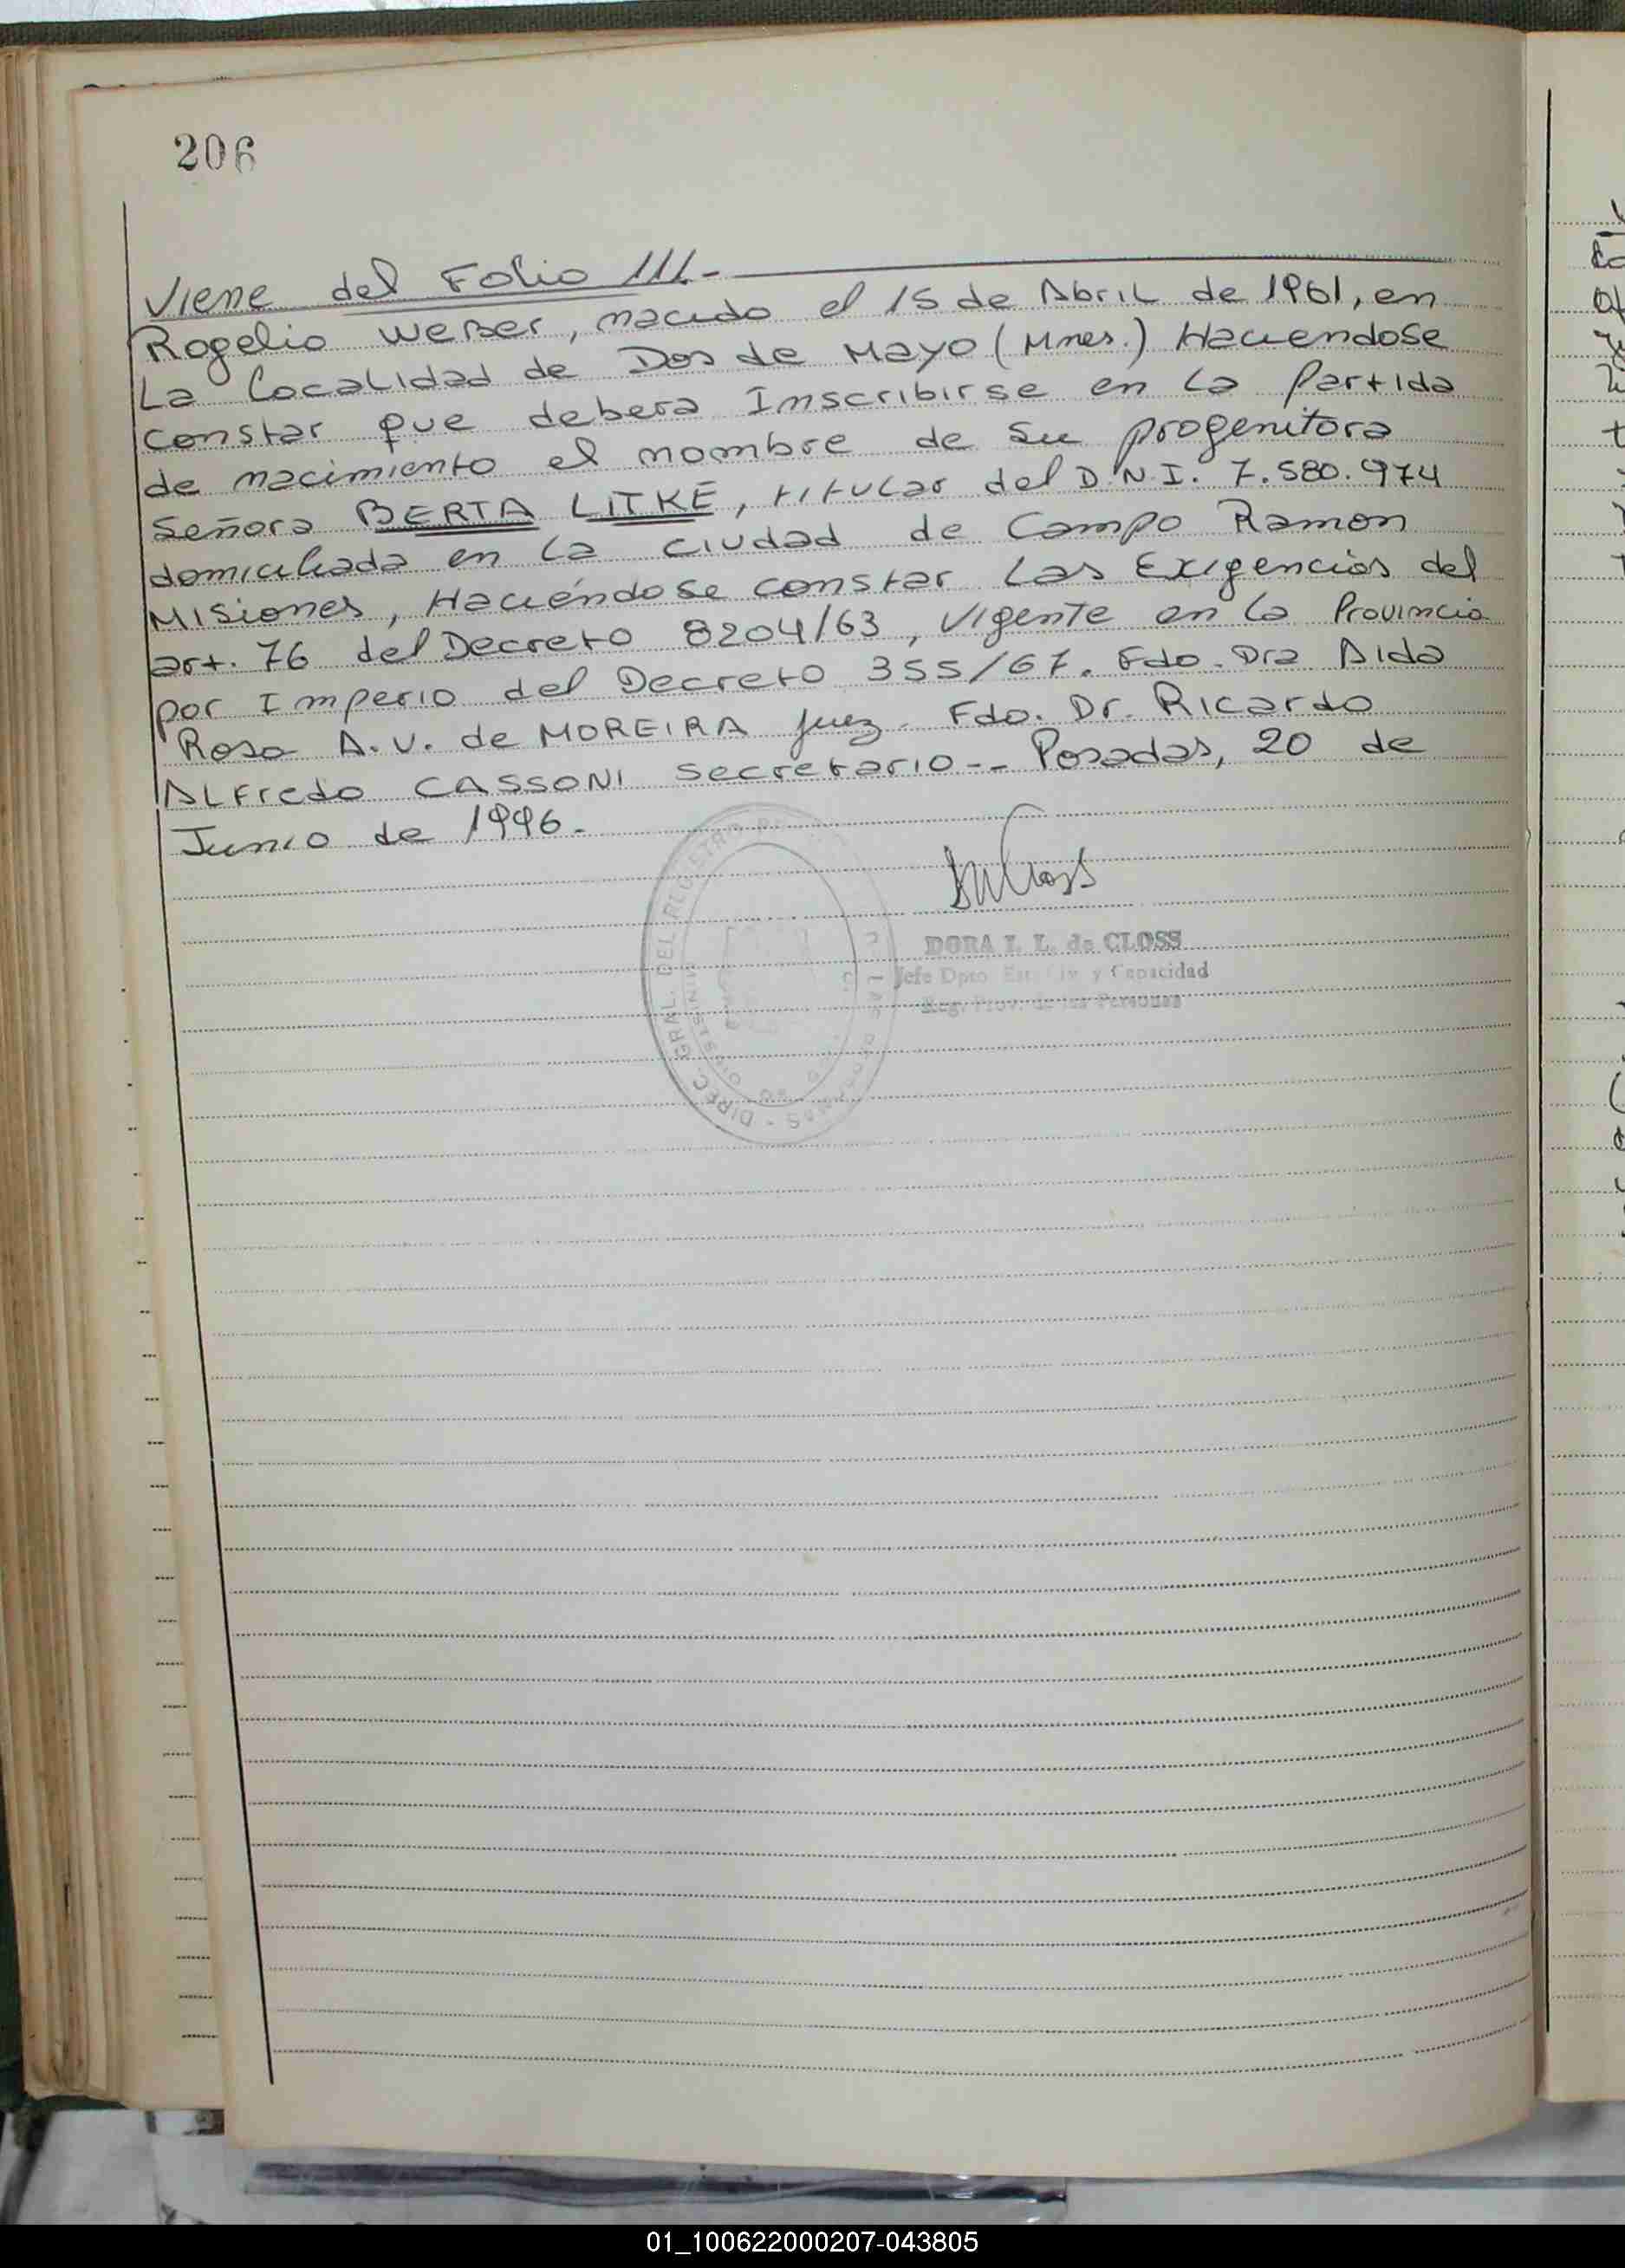 206
Viene del Folio 111.-
Rogelio Weber, nacido el 15 de Abril de 1961, en
La Localidad de Dos de Mayo (Mnes.) Haciendose
constar que debera Inscribirse en la Partida
de nacimiento el nombre de su progenitora
Señora BERTA LITKE, titular del D.N.I. 7.580.974
domiciliada en la ciudad de Campo Ramon
Misiones, Haciéndose constar Las Exigencias del
art. 76 del Decreto 8204/63, Vigente en la Provincia
por Imperio del Decreto 355/67. Fdo. Dra Aida
Rosa A.V. de MOREIRA Juez. Fdo. Dr. Ricardo
ALFredo CASSONI Secretario-- Posadas, 20 de
Junio de 1996.
DORA I. L. de CLOSS
Jefe Dpto. Est. Civ. y Capacidad
Reg. Prov. de las Personas
DIREC. GRAL. DEL
01_100622000207-043805